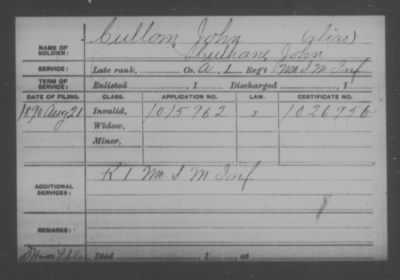 Cullom, John (alias)
NAME OF SOLDIER: Culhane, John
SERVICE: Late rank, Co. A, 1 Reg't Mo. S. M. Inf
TERM OF SERVICE: Enlisted , 1 Discharged , 1
DATE OF FILING. CLASS. APPLICATION NO. LAW. CERTIFICATE NO.
1890 Aug 21 Invalid, 1015962 1026956
Widow,
Minor,
ADDITIONAL SERVICES: K 1 Mo. S M Inf
REMARKS:
Died , 1 at